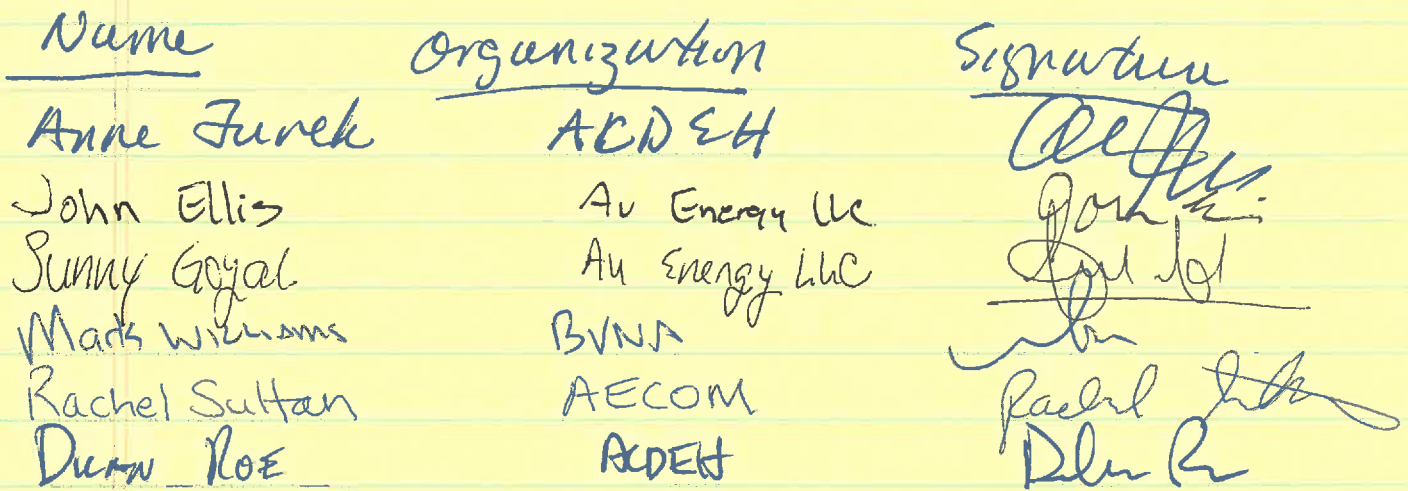 Name Organization Signature
Anne Jurek ACDEH
John Ellis Au Energy LLC
Sunny Goyal Au Energy LLC
Mark Williams BVNA
Rachel Sultan AECOM Rachel
Roe ACDEH